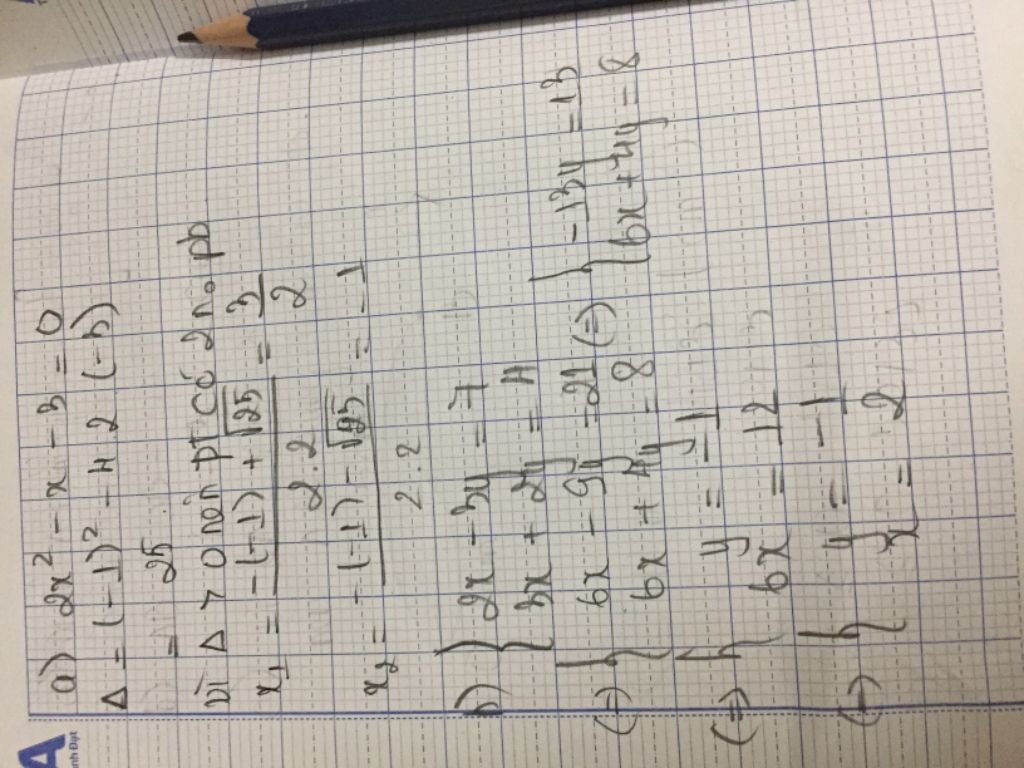 a) 2x² - x - 3 = 0
Δ = (-1)² - 4.2 (-3)
= 25
Vì Δ > 0 nên pt có 2 no pb
x₁ = -(-1) + √25 / 2.2 = 3/2
x₂ = -(-1) - √25 / 2.2 = -1
b) { 2x - 3y = 7
3x + 2y = 4
(=) { 6x - 9y = 21 (=) { -13y = 13
6x + 4y = 8 6x + 4y = 8
(=) { y = -1
6x = 12
(=) { y = -1
x = 2
A